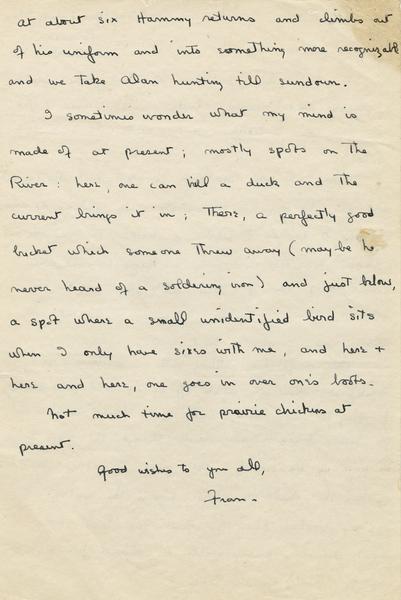 at about six Hammy returns and climbs out
of his uniform and into something more recognizable
and we take Alan hunting till sundown.
I sometimes wonder what my mind is
made of at present; mostly spots on the
River: here, one can kill a duck and the
current brings it in; There, a perfectly good
bucket which someone threw away (maybe he
never heard of a soldering iron) and just below,
a spot where a small unidentified bird sits
when I only have sixes with me, and here +
here and here, one goes in over one's boots.
Not much time for prairie chickens at
present.
Good wishes to you all,
Fran.